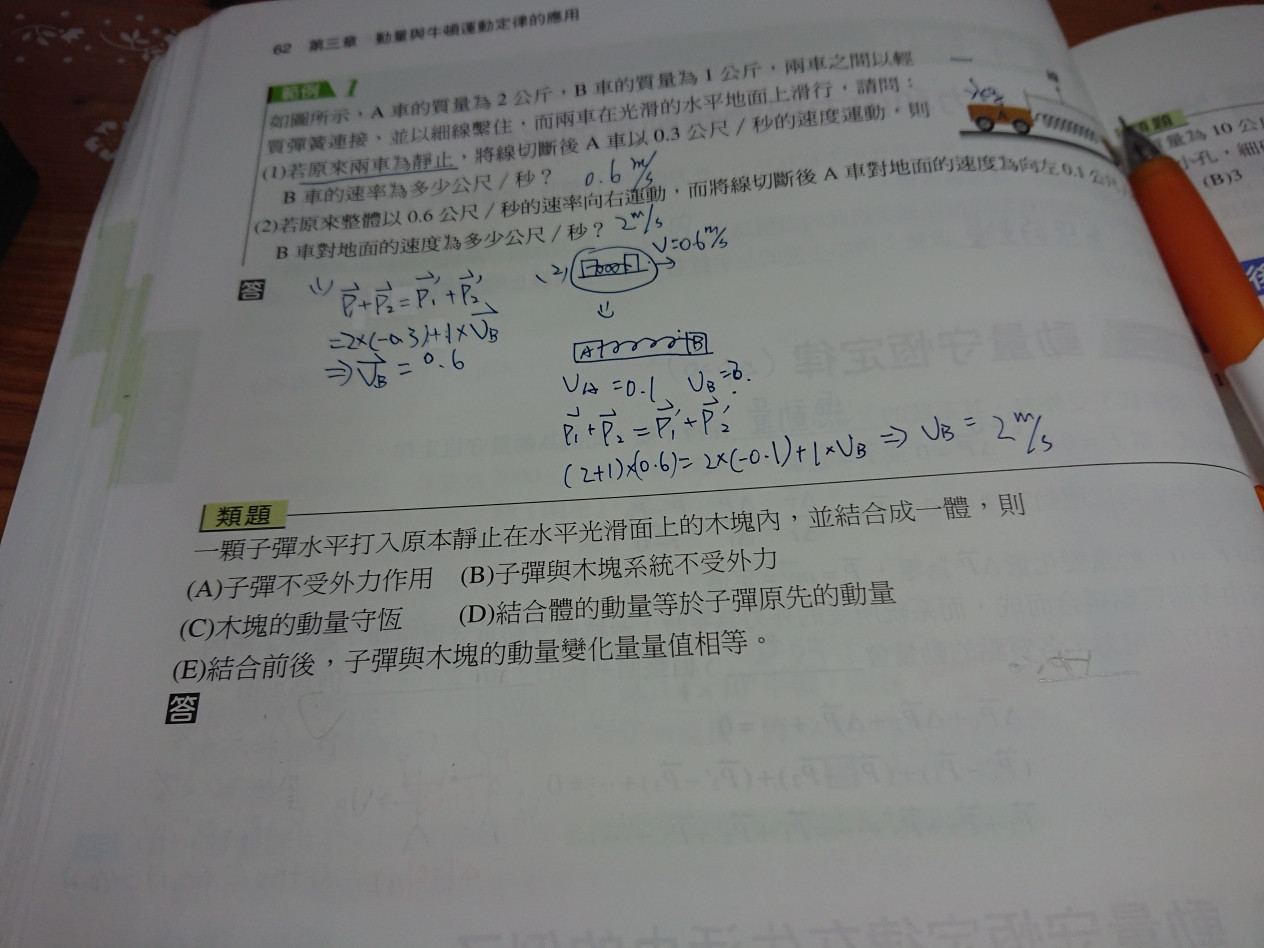 62 第三章 動量與牛頓運動定律的應用
範例 1
如圖所示,A 車的質量為 2 公斤,B 車的質量為 1 公斤,兩車之間以輕
質彈簧連接,並以細線繫住,而兩車在光滑的水平地面上滑行,請問:
(1)若原來兩車為靜止,將線切斷後 A 車以 0.3 公尺/秒的速度運動,則
B 車的速率為多少公尺/秒? 0.6 m/s
(2)若原來整體以 0.6 公尺/秒的速率向右運動,而將線切斷後 A 車對地面的速度為向左 0.1 公尺
B 車對地面的速度為多少公尺/秒? 2 m/s
答
(1) P₁+P₂=P₁'+P₂'
=2×(-0.3)+1×V_B
⇒V_B = 0.6
(2) V=0.6 m/s
A B
V_A=0.1 V_B=?
P₁+P₂=P₁'+P₂'
(2+1)×(0.6)=2×(-0.1)+1×V_B ⇒ V_B = 2 m/s
類題
一顆子彈水平打入原本靜止在水平光滑面上的木塊內,並結合成一體,則
(A)子彈不受外力作用 (B)子彈與木塊系統不受外力
(C)木塊的動量守恆 (D)結合體的動量等於子彈原先的動量
(E)結合前後,子彈與木塊的動量變化量量值相等。
答
A
類題
量為 10 公
小孔,細
(B)3